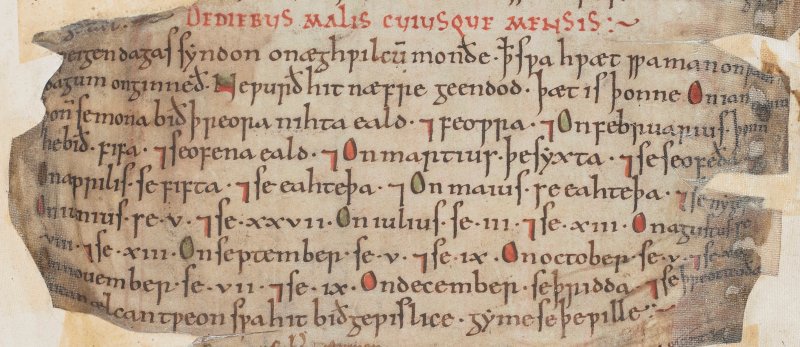 DE DIEBUS MALIS CUIUSQUE MENSIS:~
tƿegen dagas syndon on æghƿilcū monðe · þ sƿa hƿæt sƿa man on þam
dagum onginneð · Ne ƿurð hit næfre geendod · þæt is þonne On ianuarius
þoñ se mona bið þreora nihta eald · ⁊ feoƿra · ⁊ On februarius · þoñ
he bið · fifa · ⁊ seofena eald · ⁊ On martius · þe syxta · ⁊ se seofeða
On aprilis · se fifta · ⁊ se eahteþa · ⁊ On maius · se eahteþa · ⁊ se
On iunius · se · v · ⁊ se · xxvii · On iulius · se · iii · ⁊ se · xiii · On agustus se
viii · ⁊ se · xiii · On september · se · v · ⁊ se · ix · On october · se · v · ⁊ se
On november · se · vii · ⁊ se · ix · On december · se þridda · ⁊ se
calcantƿeon sƿa hit bið geƿislice · gyme se þe ƿille :~